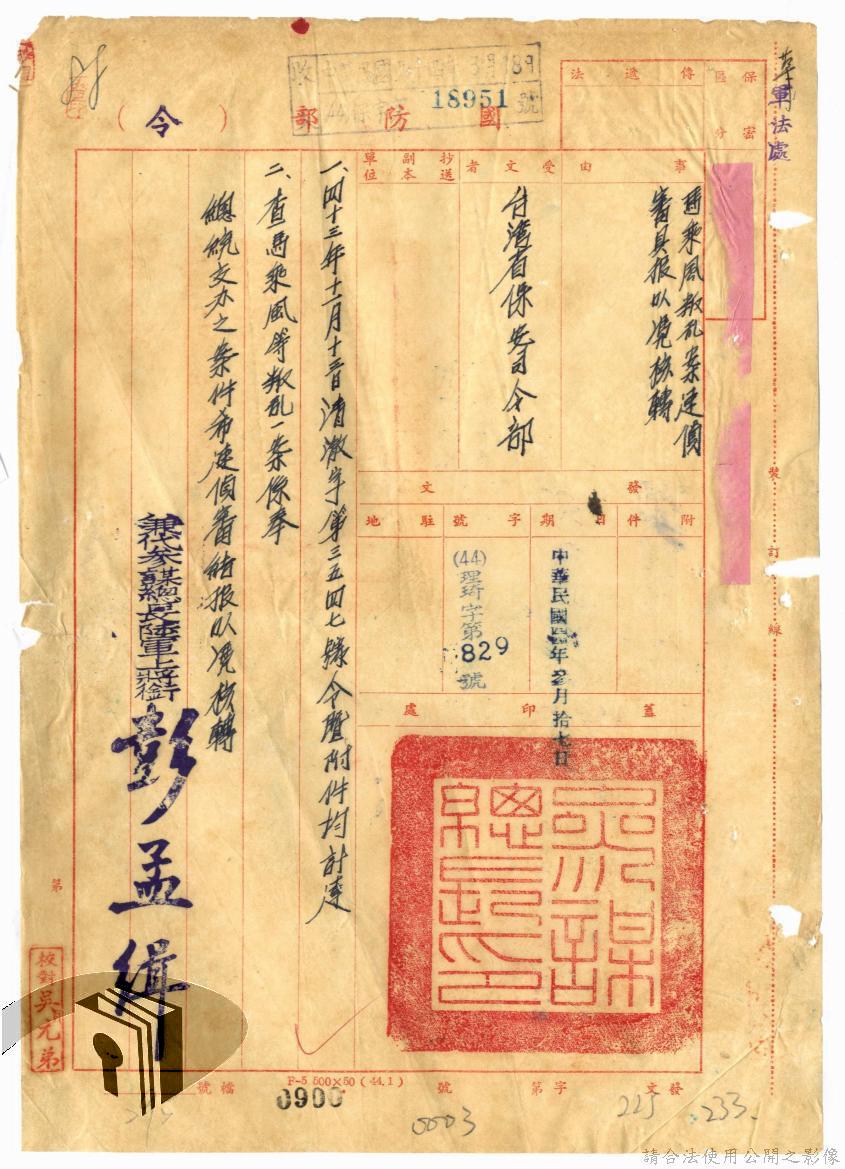 軍法處
國防部
（令）
18951
號
保密區分
傳遞法
事由
馬乘風叛乱案速偵
審具报以凭核轉
受文者
台湾省保安司令部
抄送副本單位
發文
附件
日期
中華民國四四年
月拾七日
字號
(44)
理琦字第
829
號
駐地
蓋印處
參謀
總長印
一、四十三年十二月十三日清澈字第三五四七號令暨附件均計達
二、查馬乘風等叛乱一案係奉
總統交办之案件希速偵審結报以凭核轉
兼代參謀總長陸軍上將銜
彭孟緝
裝訂線
第
校對吳元弟
發文
字第
號
檔號
F-5 500×50 (44.1)
0900
0003
225
233
請合法使用公開之影像